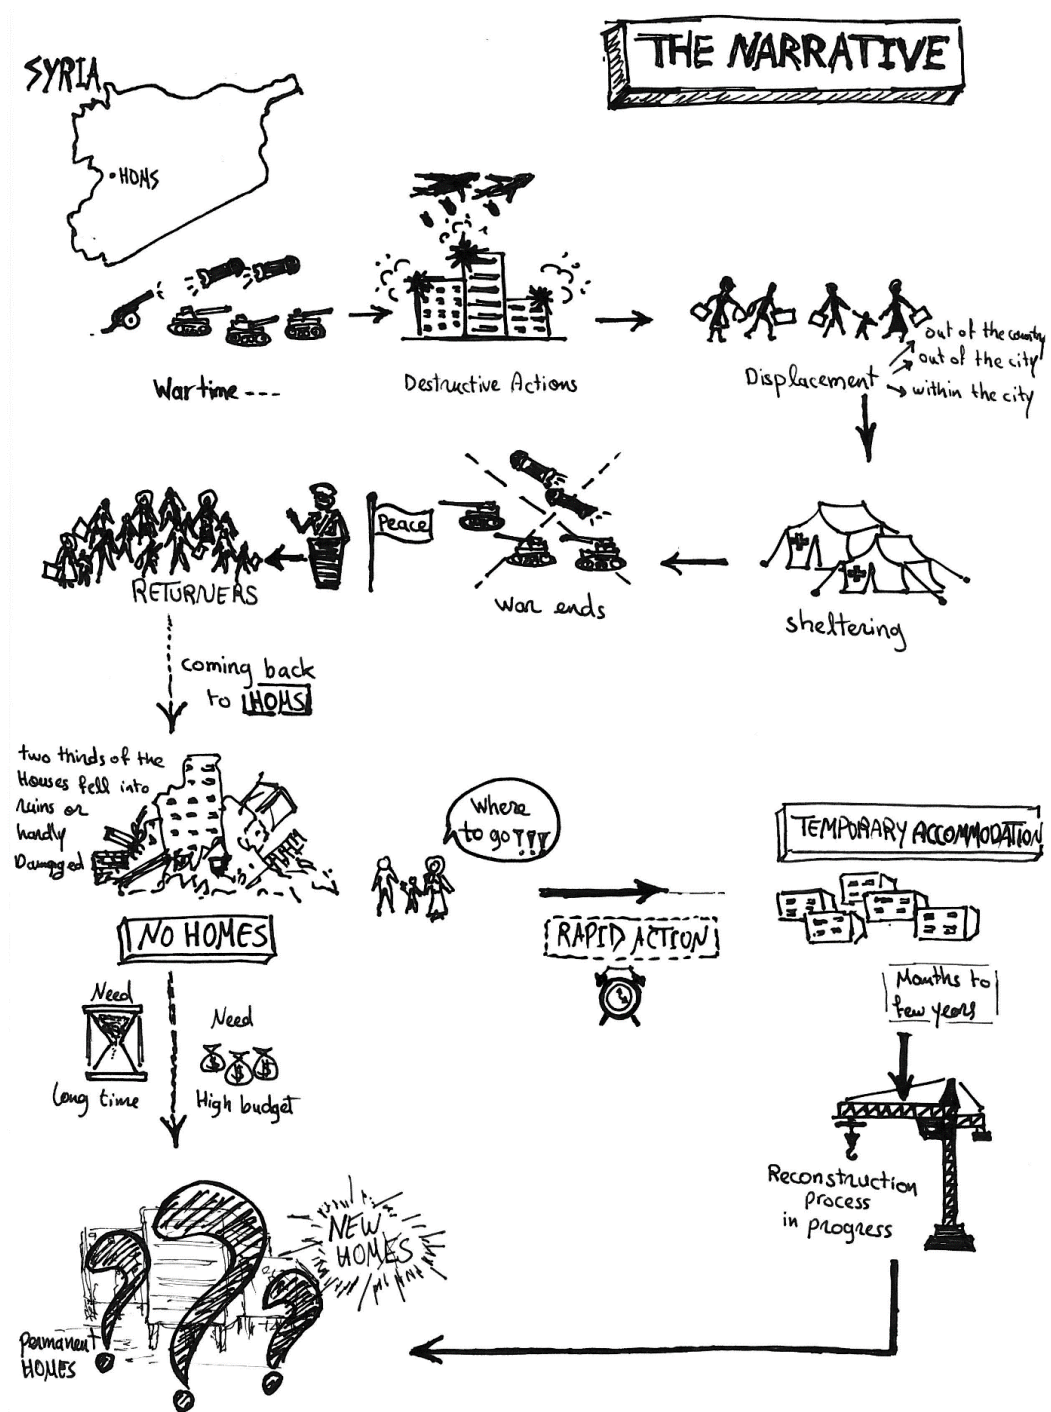 THE NARRATIVE
SYRIA
HOMS
War time ---
Destructive Actions
Displacement
out of the country
out of the city
within the city
sheltering
war ends
Peace
RETURNERS
coming back
to HOMS
two thirds of the
Houses fell into
ruins or
hardly
Damaged
NO HOMES
Where
to go???
RAPID ACTION
TEMPORARY ACCOMMODATION
Months to
few years
Reconstruction
process
in progress
Need
Long time
Need
$ $ $
High budget
NEW
HOMES
permanent
HOMES
???